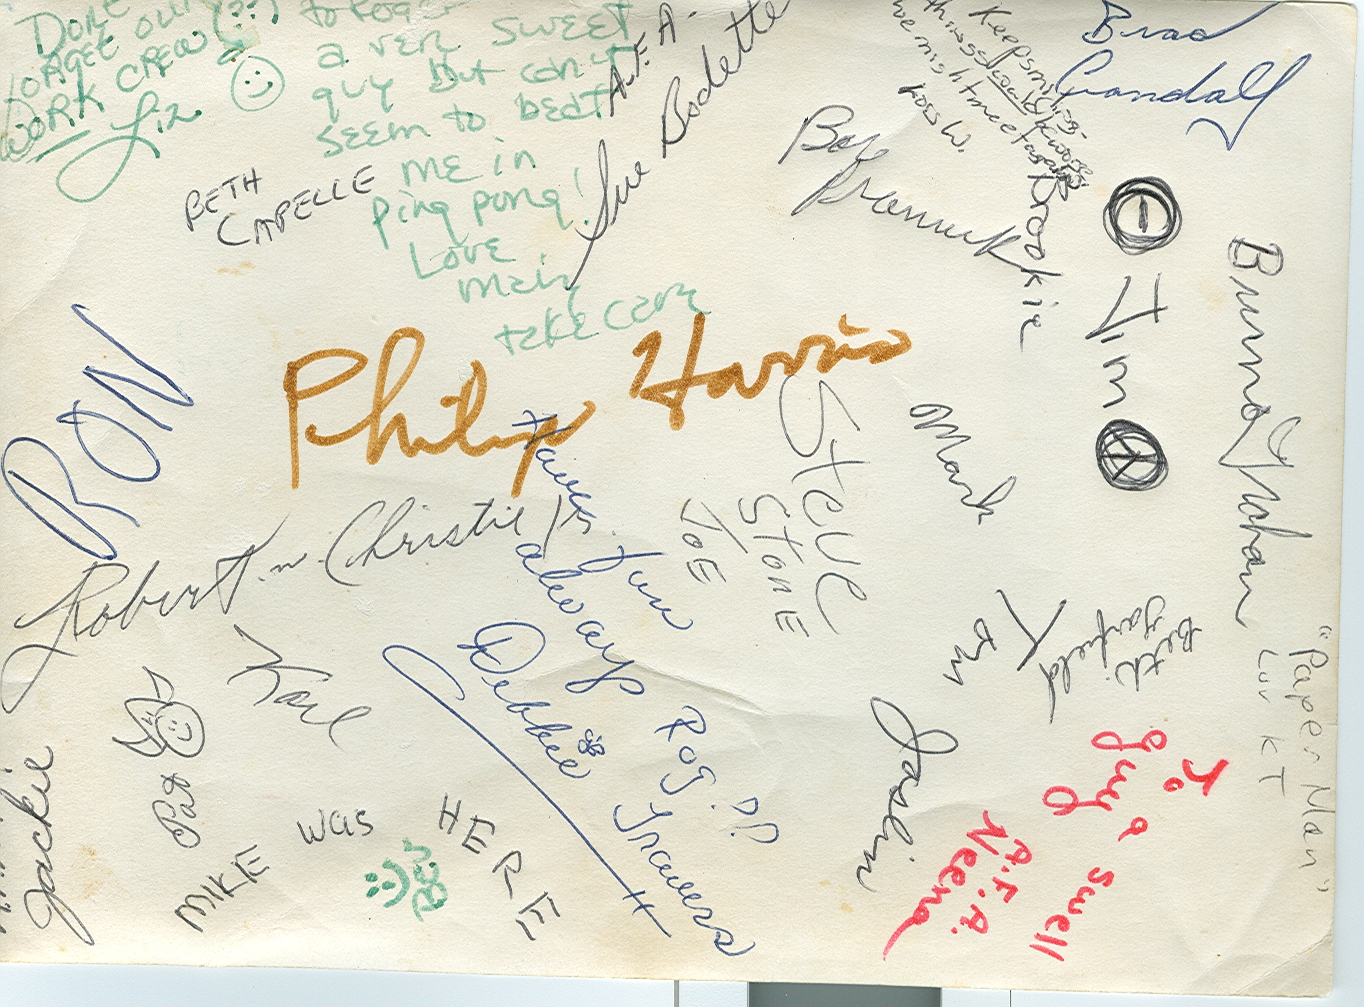 Don't
forget our
WORK CREW
Liz
to Roger
a very sweet
guy but can't
seem to beat
me in
ping pong!
Love
take care
A.F.A.
Sue Bodette
BETH
CAPELLE
Keep smiling
we might meet again
Brookie
Brad
Crandall
Bob
Jim
Bruno
"Paper Man"
Luv KT
Philip Harris
RON
Robert W. Christie
Have fun
always
Debbie
Steve
Stone
Joe
Mark
Tom
Beth
Garfield
Karl
Pat
Jackie
MIKE
was
HERE
Rog
Travers
Joslin
To
a swell
guy
A.F.A.
Neena